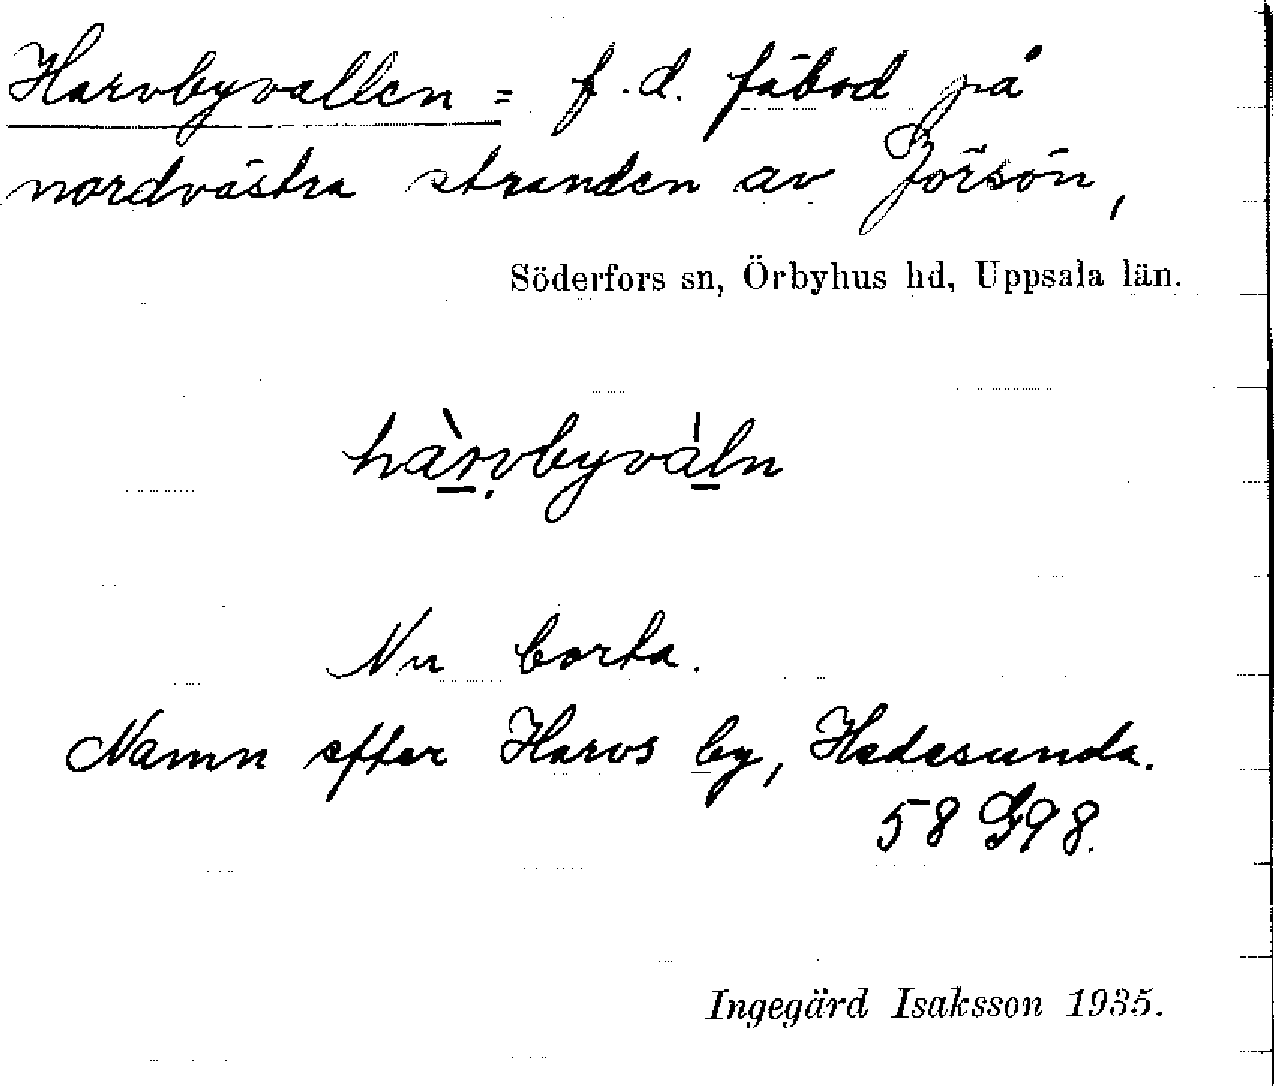 Harvbyvallen = f.d. fäbod på
nordvästra stranden av Jörsön,
Söderfors sn, Örbyhus hd, Uppsala län.
hàrvbyvàln
Nu borta.
Namn efter Harvs by, Hedesunda.
58 G98.
Ingegärd Isaksson 1935.